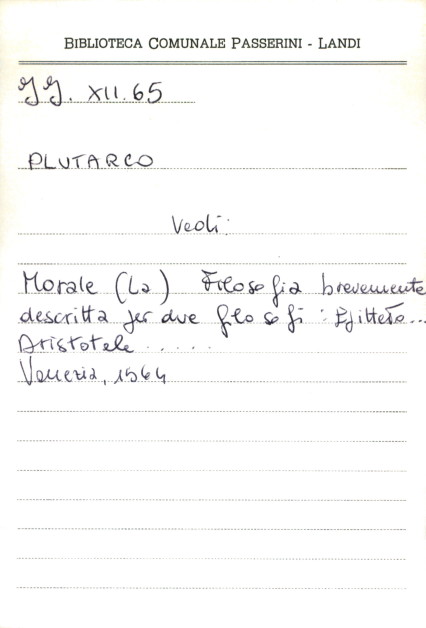 BIBLIOTECA COMUNALE PASSERINI - LANDI
GG. XII.65
PLUTARCO
Vedi:
Morale (La) Filosofia brevemente
descritta per due filosofi: Epitteto...
Aristotele .....
Venezia, 1564